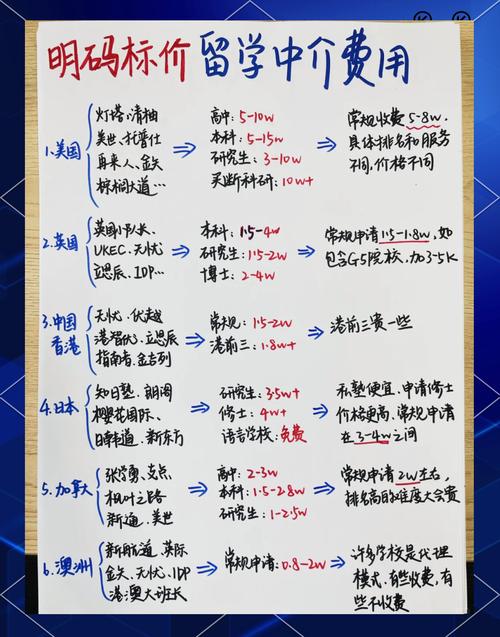 明码标价 留学中介费用
1.美国
灯塔、清柚
美世、托普仕
再来人、金矢
棕榈大道…
高中：5-10w
本科：5-15w
研究生：3-10w
买断科研：10w+
常规收费5-8w，
具体排名和服务
不同，价格不同
2.英国
英国小队长、
UKEC、无忧
立思辰、IDP…
本科：1.5-4w
研究生：1.5-2w
博士：2-4w
常规申请1.5-1.8w，如
包含G5院校，加3-5K
3.中国
香港
无忧、优越
港智优、立思辰
指南者、金吉列
常规：1.5-2w
港前三：1.8w+
港前三贵一些
4.日本
知日塾、朝阁
樱花国际、
新东方
研究生：3.5w+
修士：4w+
语言学校：免费
私塾便宜、申请修士
价格更高、常规申请
在3-4w之间
5.加拿大
支点
枫叶之路
新通、美世
高中：2-3w
本科：1.5-2.8w
研究生：1-2.5w
常规申请2w左右，
排名高的难度大会贵
6.澳洲
新航道、英际
金矢、无忧、IDP
港澳大班长
常规申请：0.8-2w
许多学校是代理
模式、有些收费，有
些不收费